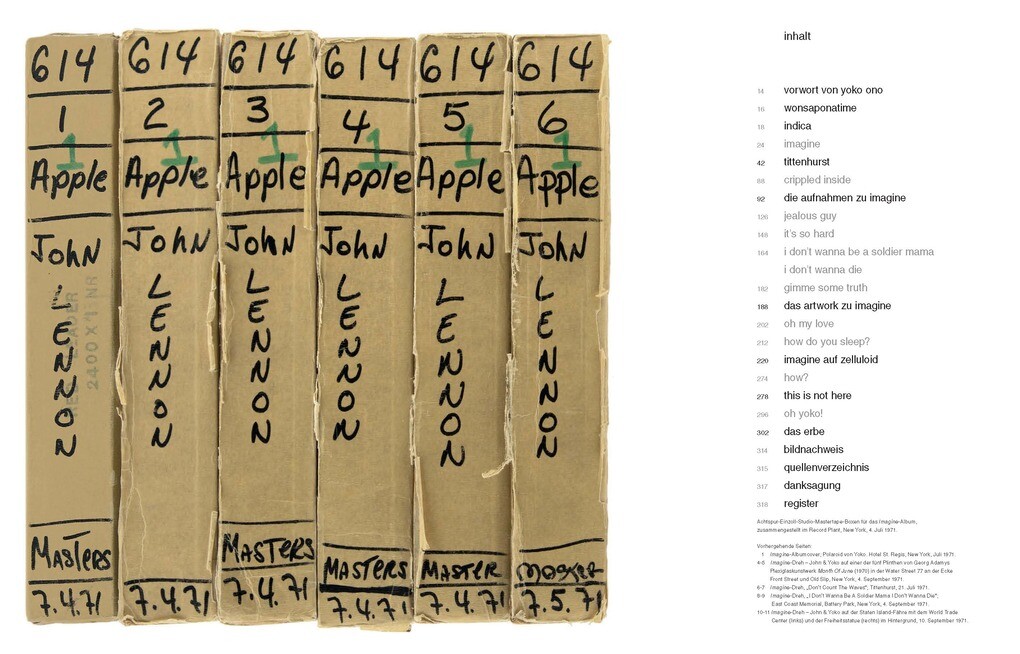 614
1
1
Apple
John
LENNON
Masters
7.4.71
614
2
1
Apple
John
LENNON
7.4.71
614
3
1
Apple
John
LENNON
MASTERS
7.4.71
614
4
1
Apple
John
LENNON
MASTERS
7.4.71
614
5
1
Apple
John
LENNON
MASTER
7.4.71
614
6
1
Apple
John
LENNON
7.5.71
2400 X 1 NR
inhalt
14 vorwort von yoko ono
16 wonsaponatime
18 indica
24 imagine
42 tittenhurst
88 crippled inside
92 die aufnahmen zu imagine
126 jealous guy
148 it's so hard
164 i don't wanna be a soldier mama
i don't wanna die
182 gimme some truth
188 das artwork zu imagine
202 oh my love
212 how do you sleep?
220 imagine auf zelluloid
274 how?
278 this is not here
296 oh yoko!
302 das erbe
314 bildnachweis
315 quellenverzeichnis
317 danksagung
318 register
Achtspur-Einzoll-Studio-Mastertape-Boxen für das Imagine-Album,
zusammengestellt im Record Plant, New York, 4. Juli 1971.
Vorhergehende Seiten:
1 Imagine-Albumcover, Polaroid von Yoko. Hotel St. Regis, New York, Juli 1971.
4-5 Imagine-Dreh – John & Yoko auf einer der fünf Plinthen von Georg Adamys
Plexiglaskunstwerk Month Of June (1970) in der Water Street 77 an der Ecke
Front Street und Old Slip, New York, 4. September 1971.
6-7 Imagine-Dreh, „Don't Count The Waves", Tittenhurst, 21. Juli 1971.
8-9 Imagine-Dreh, „I Don't Wanna Be A Soldier Mama I Don't Wanna Die",
East Coast Memorial, Battery Park, New York, 4. September 1971.
10-11 Imagine-Dreh – John & Yoko auf der Staten Island-Fähre mit dem World Trade
Center (links) und der Freiheitsstatue (rechts) im Hintergrund, 10. September 1971.